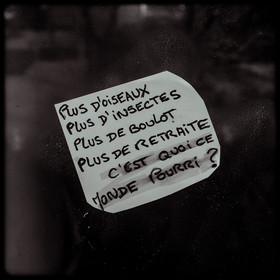 PLUS D'OISEAUX
PLUS D'INSECTES
PLUS DE BOULOT
PLUS DE RETRAITE
C'EST QUOI CE
MONDE POURRI ?